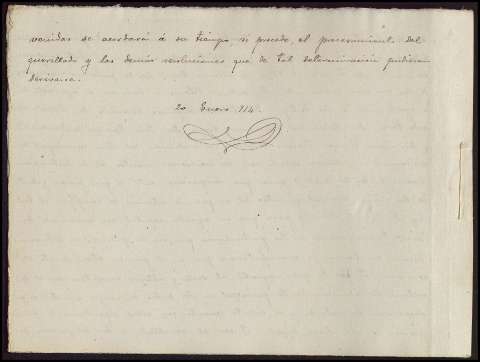 vencidas se acordará á su tiempo si procede el procesamiento del
querellado y las demás resoluciones que de tal determinación pudieran
derivarse.
20 Enero 914.